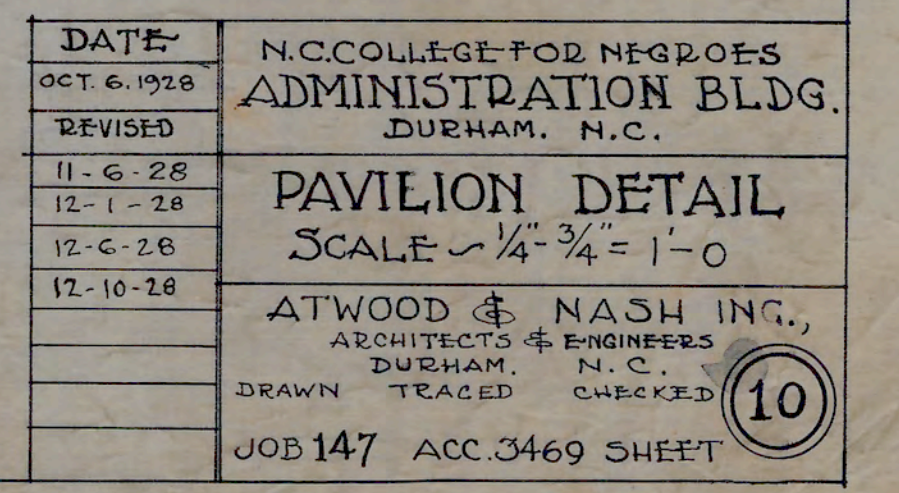 DATE
OCT. 6. 1928
REVISED
11 - 6 - 28
12 - 1 - 28
12 - 6 - 28
12 - 10 - 28
N.C. COLLEGE FOR NEGROES
ADMINISTRATION BLDG.
DURHAM. N.C.
PAVILION DETAIL
SCALE ~ 1/4" - 3/4" = 1' - 0
ATWOOD & NASH INC.,
ARCHITECTS & ENGINEERS
DURHAM. N.C.
DRAWN TRACED CHECKED
JOB 147 ACC. 3469 SHEET 10